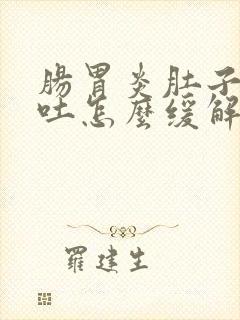 腸胃炎肚子
吐怎麼緩解
羅建生